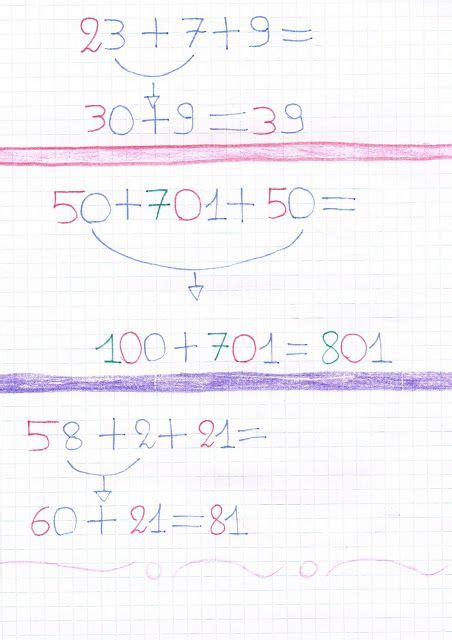 23+7+9=
30+9=39
50+701+50=
100+701=801
58+2+21=
60+21=81